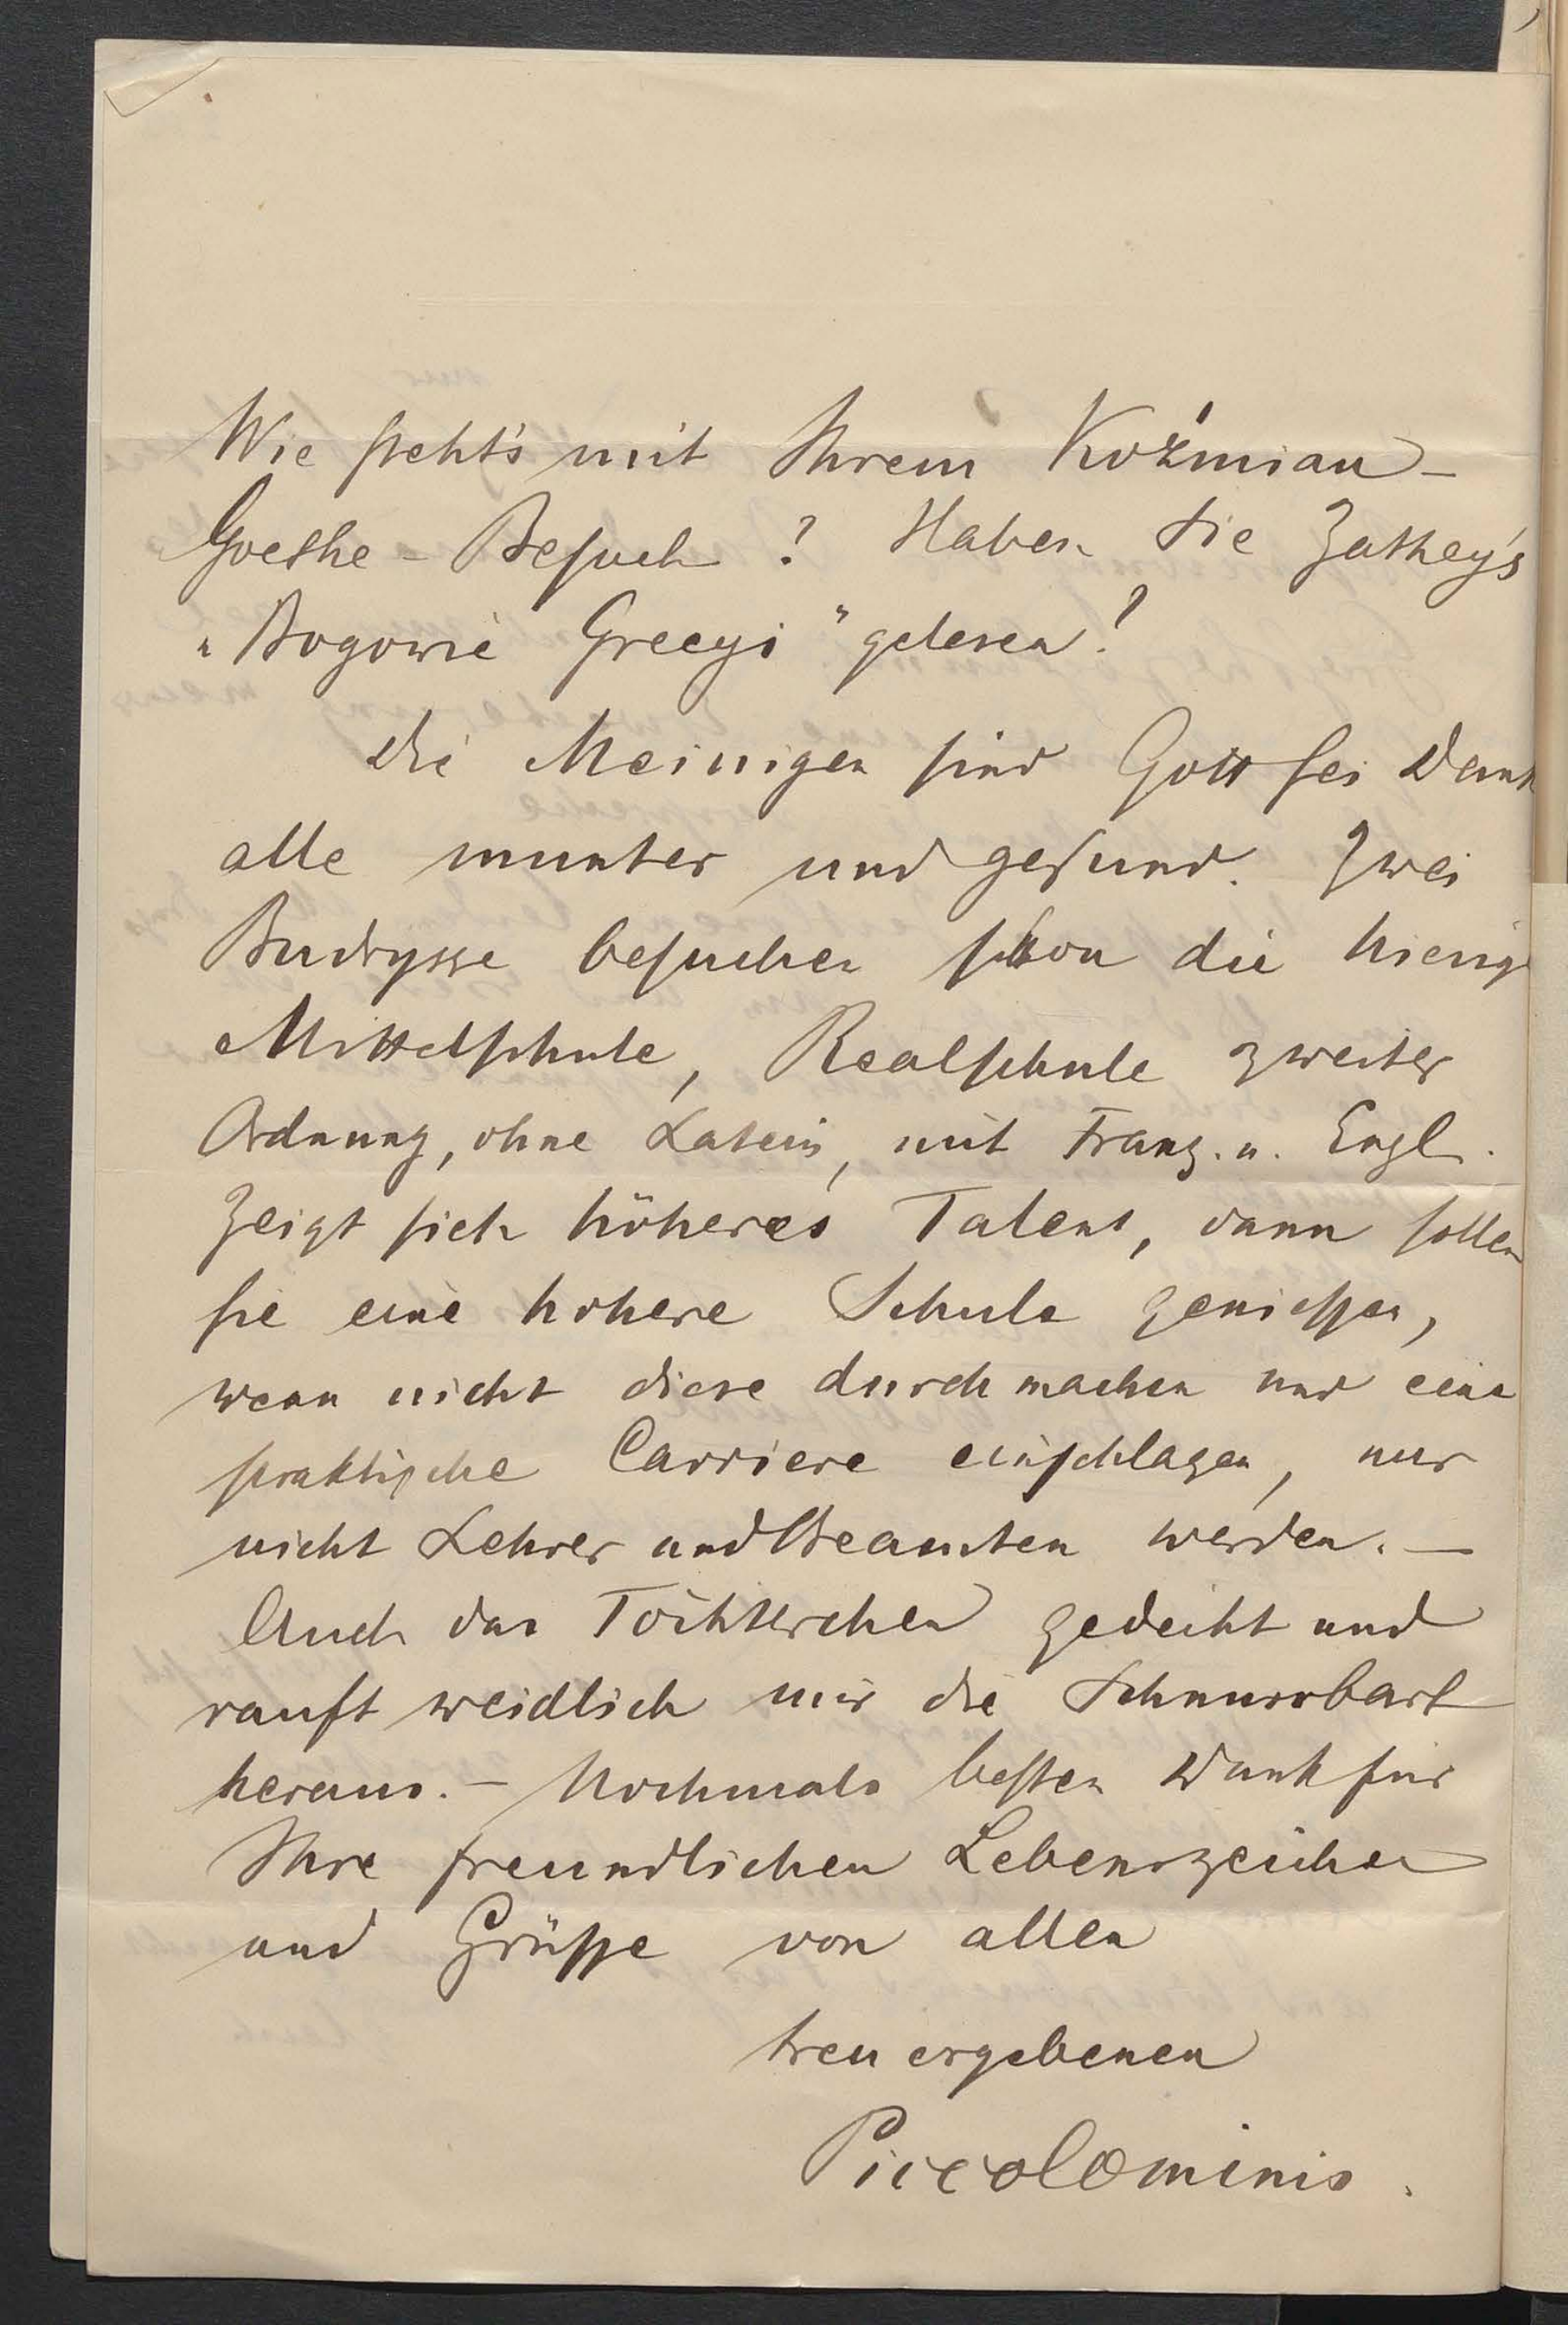 Wie steht's mit Ihrem Koźmian-
Goethe-Besuch? Haben Sie Zathey's
„Bogowie Grecyi" gelesen?
Die Meinigen sind Gott sei Dank
alle munter und gesund. Zwei
Budrysse besuchen schon die hiesige
Mittelschule, Realschule zweiter
Ordnung, ohne Latein, mit Franz. u. Engl.
Zeigt sich höheres Talent, dann sollen
sie eine höhere Schule geniessen,
wenn nicht diese durchmachen und eine
praktische Carriere einschlagen, nur
nicht Lehrer und Beamten werden. —
Auch das Töchterchen gedeiht und
rauft weidlich mir die Schnurrbart
heraus. — Nochmals besten Dank für
Ihre freundlichen Lebenszeichen
und Grüsse von allen
treu ergebenen
Piccolominis.